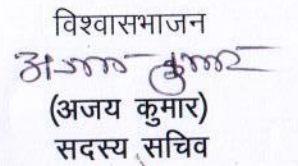 विश्वासभाजन
अजय कुमार
(अजय कुमार)
सदस्य सचिव